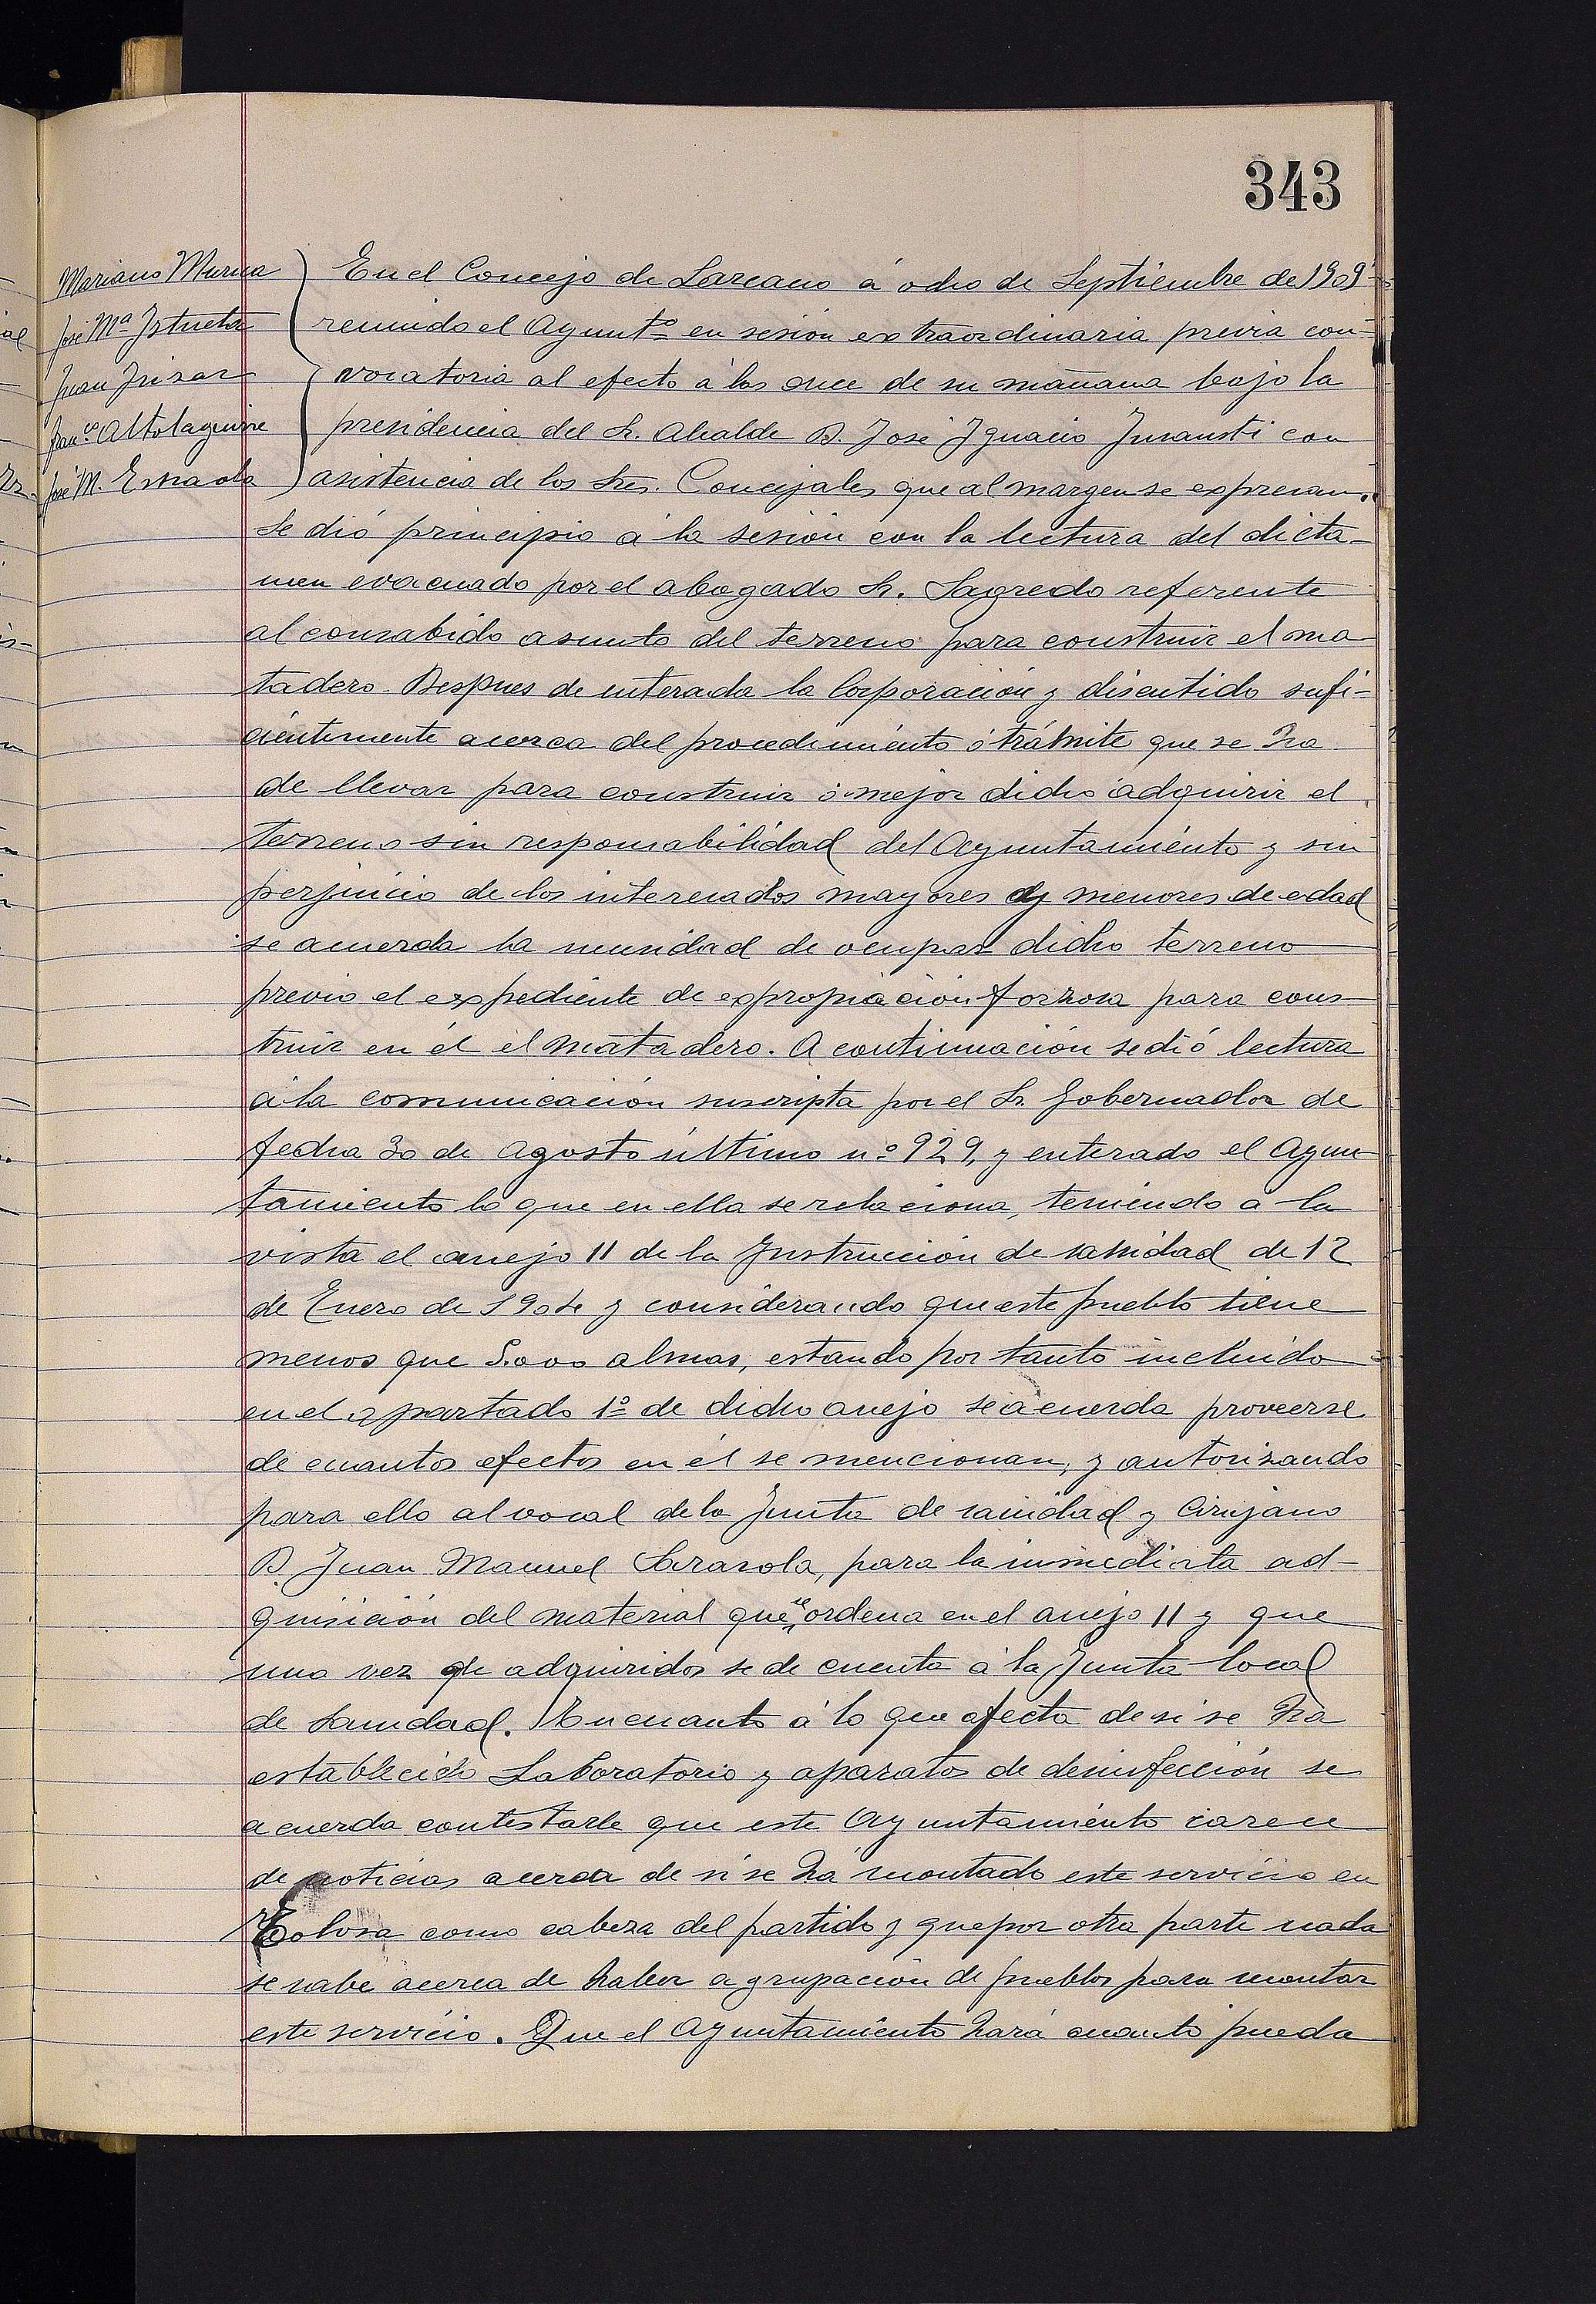 343
Mariano Murua
José Mª Iztueta
Juan Irizar
Franco Altolaguirre
José M. Estraola
En el Concejo de Lazcano á ocho de Septiembre de 1909
reunido el Ayuntº en sesión extraordinaria previa con-
vocatoria al efecto á las once de su mañana bajo la
presidencia del Sr. Alcalde D. José Ignacio Insausti con
asistencia de los Sres. Concejales que al margen se expresan.
Se dió principio á la sesión con la lectura del dicta-
men evacuado por el abogado Sr. Sagredo referente
al consabido asunto del terreno para construir el ma
tadero. Despues de enterada la Corporación y discutido sufi-
cientemente acerca del procedimiento ó trámite que se ha
de llevar para construir ó mejor dicho adquirir el
terreno sin responsabilidad del Ayuntamiento y sin
perjuicio de los interesados mayores y menores de edad
se acuerda la necesidad de ocupar dicho terreno
previo el expediente de expropiación forzosa para cons
truir en él el matadero. A continuación se dió lectura
á la comunicación suscripta por el Sr. Gobernador de
fecha 30 de Agosto último nº 929, y enterado el Ayun
tamiento lo que en ella se relaciona, teniendo á la
vista el anejo 11 de la Instrucción de sanidad de 12
de Enero de 1904 y considerando que este pueblo tiene
menos que 5.000 almas, estando por tanto incluido
en el apartado 1º de dicho anejo se acuerda proveerse
de cuantos efectos en él se mencionan, y autorizando
para ello al vocal de la Junta de sanidad y Cirujano
D. Juan Manuel Sarasola, para la inmediata ad-
quisición del material que se ordena en el anejo 11 y que
una vez de adquiridos se de cuenta á la Junta local
de Sanidad. En cuanto á lo que afecta de si se ha
establecido Laboratorio y aparatos de desinfección se
acuerda contestarle que este Ayuntamiento carece
de noticias acerca de si se ha montado este servicio en
Tolosa como cabeza del partido y que por otra parte nada
se sabe acerca de haber agrupación de pueblos para montar
este servicio. Que el Ayuntamiento hará cuanto pueda